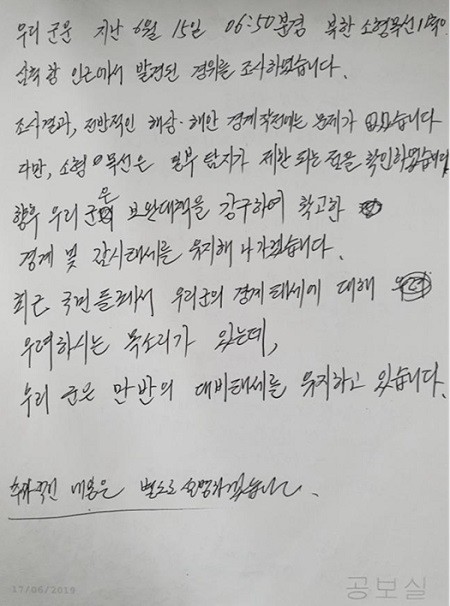 우리 군은 지난 6월 15일 06:50분경 북한 소형목선 1척이
삼척항 인근에서 발견된 경위를 조사하였습니다.
조사결과, 전반적인 해상·해안 경계작전에는 문제가 없었습니다
다만, 소형 목선은 일부 탐지가 제한되는 점을 확인하였습니다
향후 우리 군은 보완대책을 강구하여 확고한
경계 및 감시태세를 유지해 나가겠습니다.
최근 국민들께서 우리군의 경계태세에 대해
우려하시는 목소리가 있는데,
우리 군은 만반의 대비태세를 유지하고 있습니다.
추가적인 내용은 별도로 설명하겠습니다.
17/06/2019
공보실